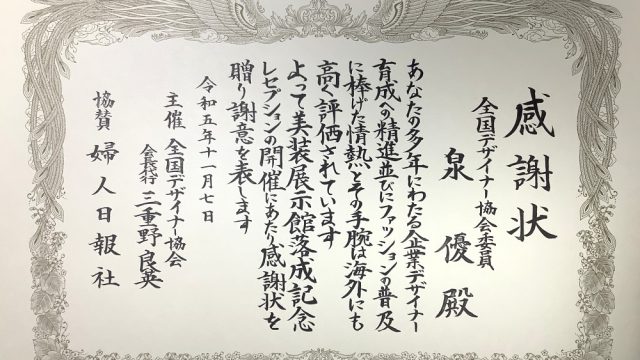 感謝状
全国デザイナー協会委員
泉優殿
あなたの多年にわたる企業デザイナー
育成への精進並びにファッションの普及
に捧げた情熱とその手腕は海外にも
高く評価されています
よって美装展示館落成記念
レセプションの開催にあたり感謝状を
贈り謝意を表します
令和五年十一月七日
主催 全国デザイナー協会
会長代行 三重野良英
協賛 婦人日報社